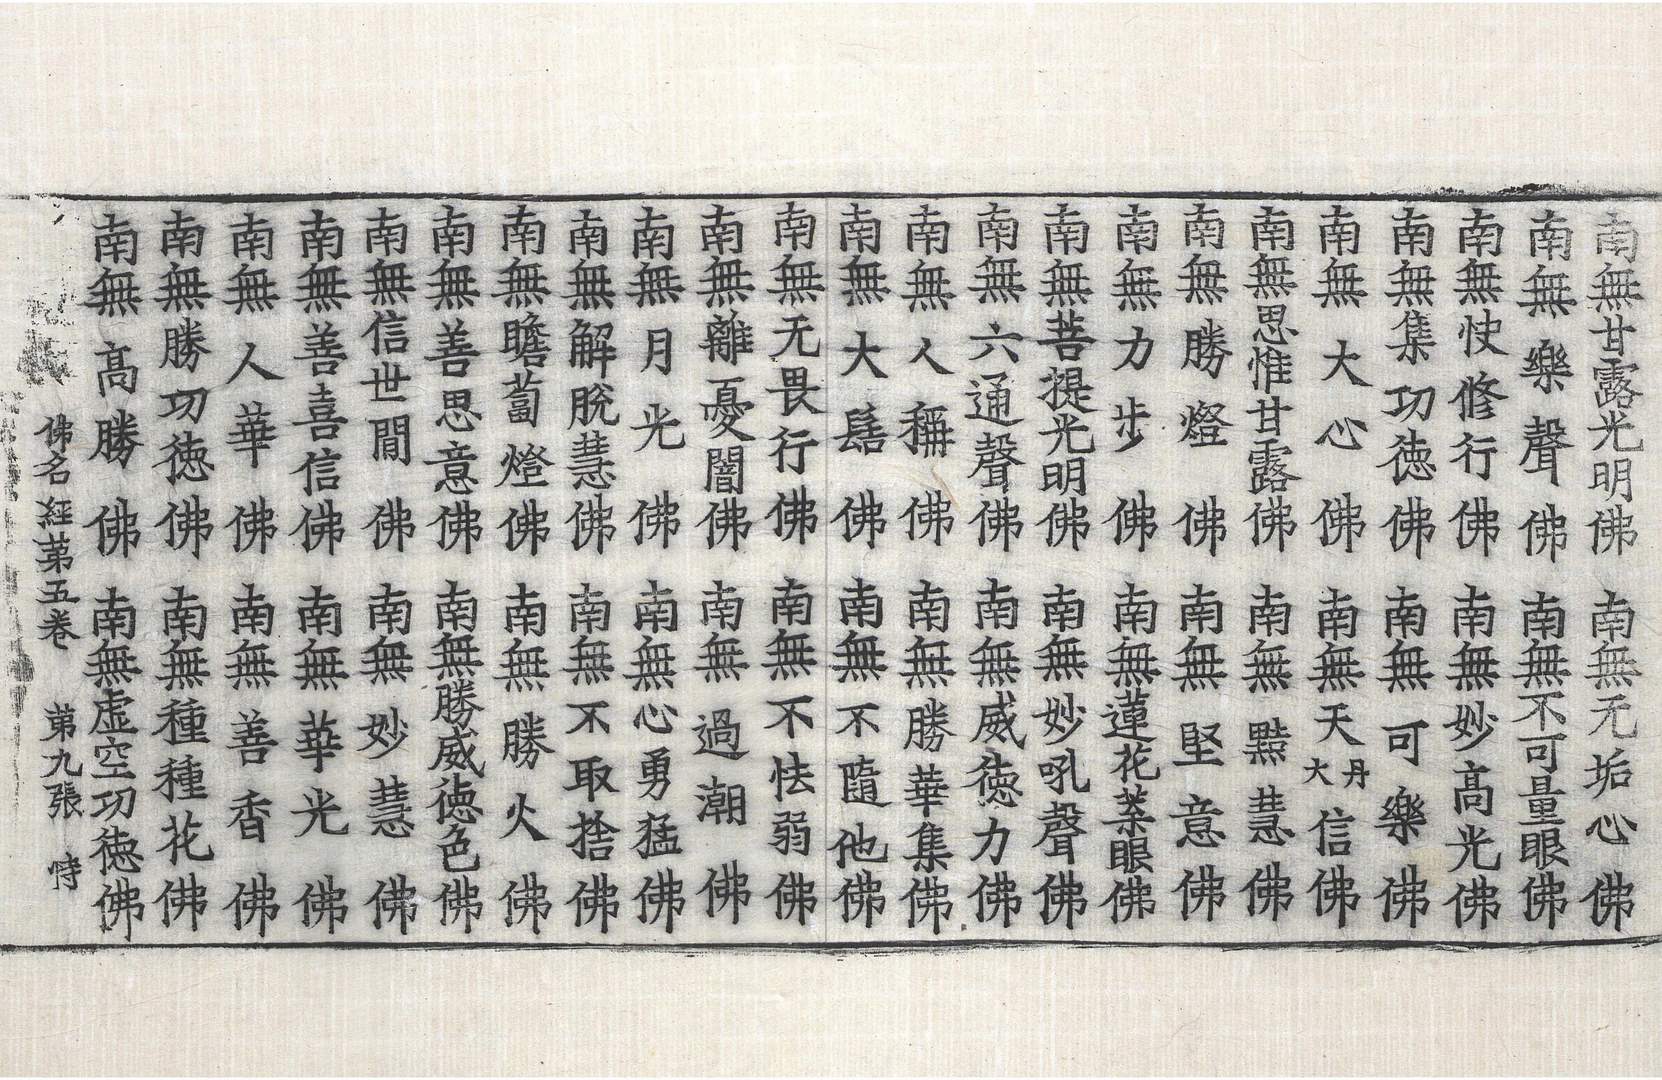 南無甘露光明佛　南無无垢心佛
南無樂聲佛　南無不可量眼佛
南無快修行佛　南無妙高光佛
南無集功徳佛　南無可樂佛
南無大心佛　南無天丹大信佛
南無思惟甘露佛　南無黠慧佛
南無勝燈佛　南無堅意佛
南無力步佛　南無蓮花葉眼佛
南無菩提光明佛　南無妙吼聲佛
南無六通聲佛　南無威徳力佛
南無人稱佛　南無勝華集佛
南無大髻佛　南無不隨他佛
南無无畏行佛　南無不怯弱佛
南無離憂闇佛　南無過潮佛
南無月光佛　南無心勇猛佛
南無解脫慧佛　南無不取捨佛
南無瞻蔔燈佛　南無勝火佛
南無善思意佛　南無勝威徳色佛
南無信世閒佛　南無妙慧佛
南無善喜信佛　南無華光佛
南無人華佛　南無善香佛
南無勝功徳佛　南無種種花佛
南無高勝佛　南無虛空功徳佛
佛名經苐五卷　苐九張　恃